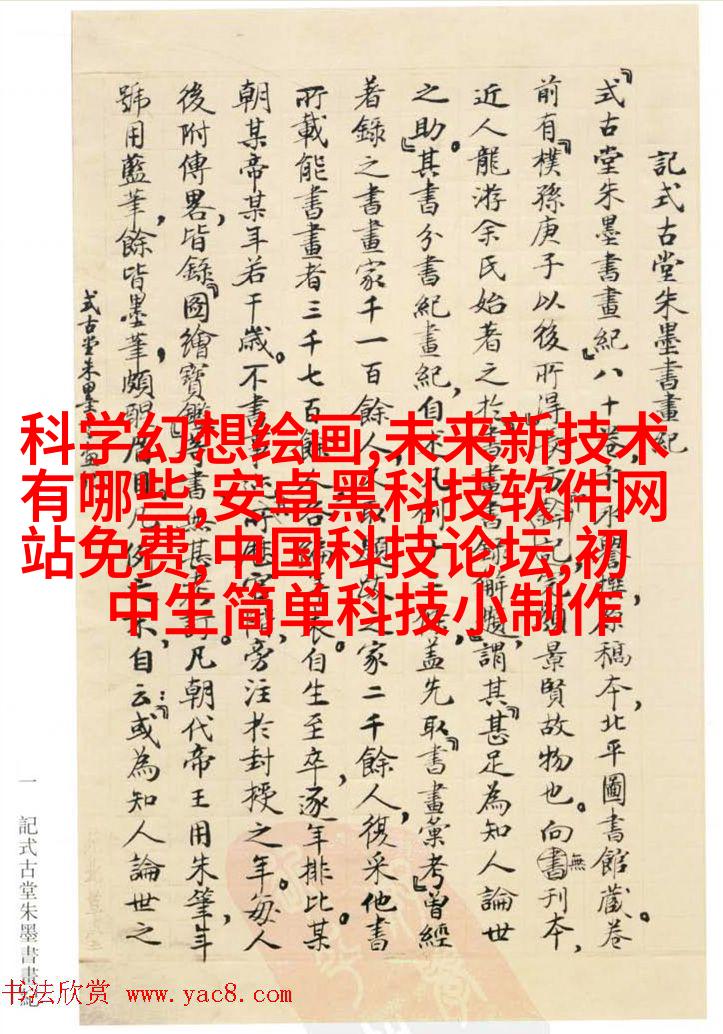 記式古堂朱墨書畫紀
『式古堂朱墨書畫紀』八十卷,
稿本,北平圖書館藏。卷
前有『樸孫庚子以後所得』
景賢故物也。向無書刊本,
近人龍游余氏始著之於
謂其『甚足為知人論世
之助。』其書分書紀畫紀,自
蓋先取『書畫彙考』曾經
著錄之書畫家千一百餘人,
家二千餘人,復采他書
所載能書畫者三千七百餘人
自生至卒,逐年排比某
朝某帝某年若干歲。不書事
旁注於封授之年。每人
後附傳畧,皆錄『圖繪寶鑑』等書
凡朝代帝王用朱筆,年
號用藍筆,餘皆墨筆,頗醒眉目
自云:『或為知人論世之
式古堂朱墨書畫
科学幻想绘画,未来新技术
有哪些,安卓黑科技软件网
站免费,中国科技论坛,初
中生简单科技小制作
一
記式古堂朱墨書畫紀
书法欣赏 www.yac8.com